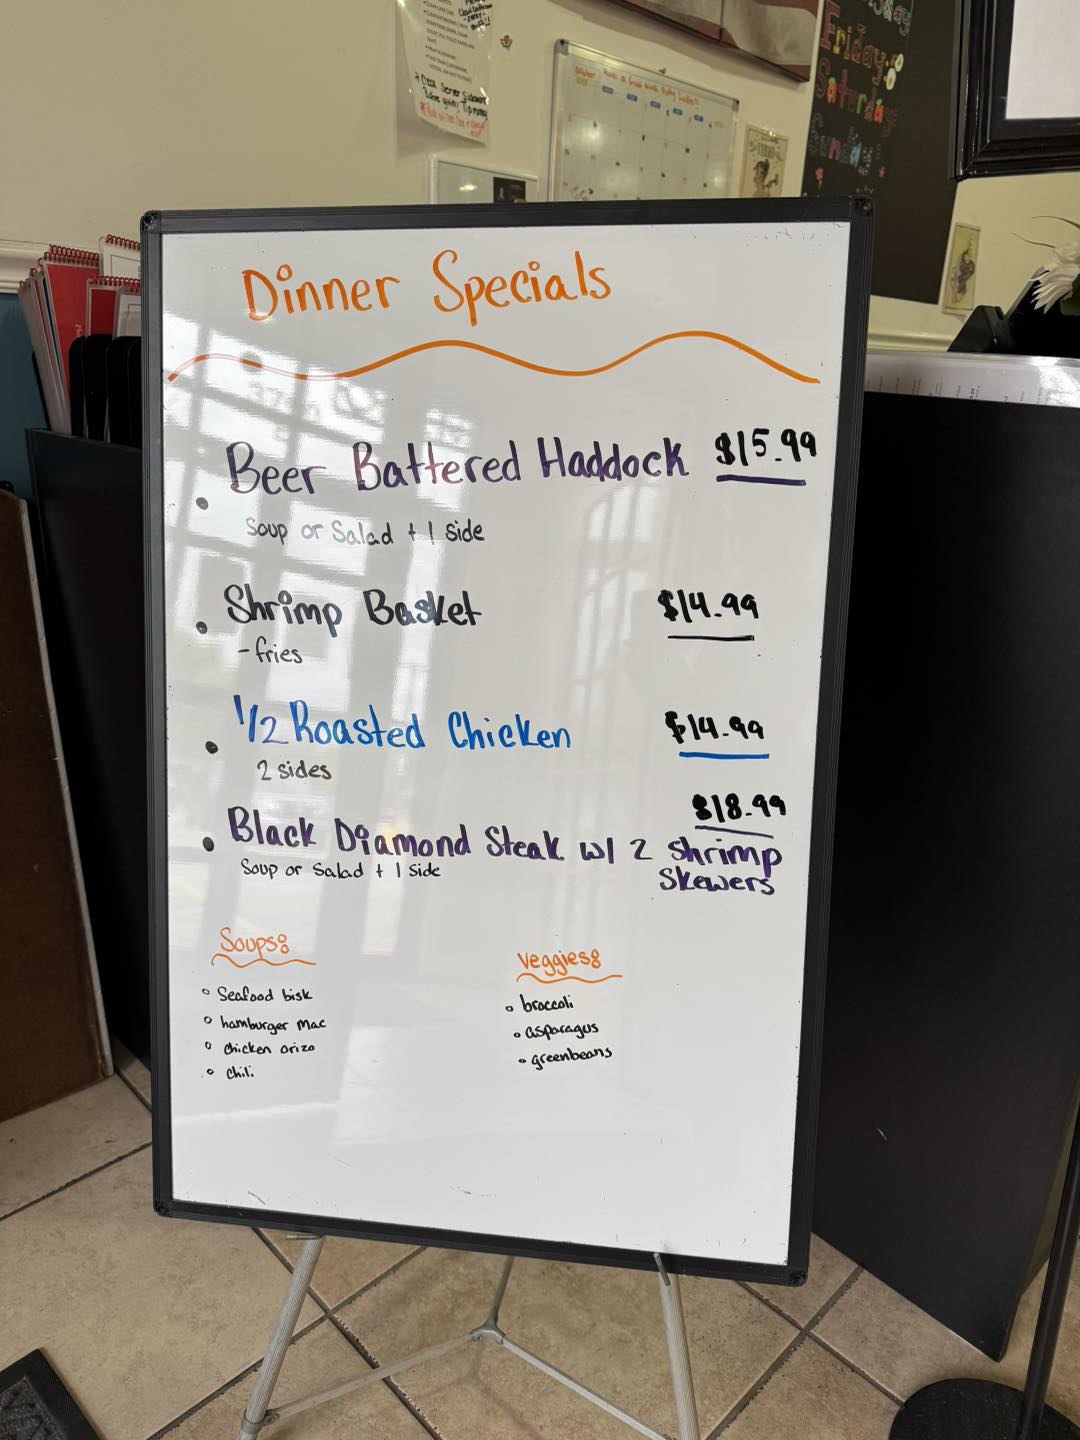 Friday
Saturday
Sunday
Clean Server Sidework
Before going Tip money
Dinner Specials
Beer Battered Haddock $15.99
Soup or Salad + 1 side
Shrimp Basket $14.99
- fries
1/2 Roasted Chicken $14.99
2 sides
$18.99
Black Diamond Steak w/ 2 shrimp
Skewers
Soup or Salad + 1 side
Soups:
Seafood bisk
hamburger mac
chicken orizo
chili
Veggies:
broccoli
asparagus
greenbeans